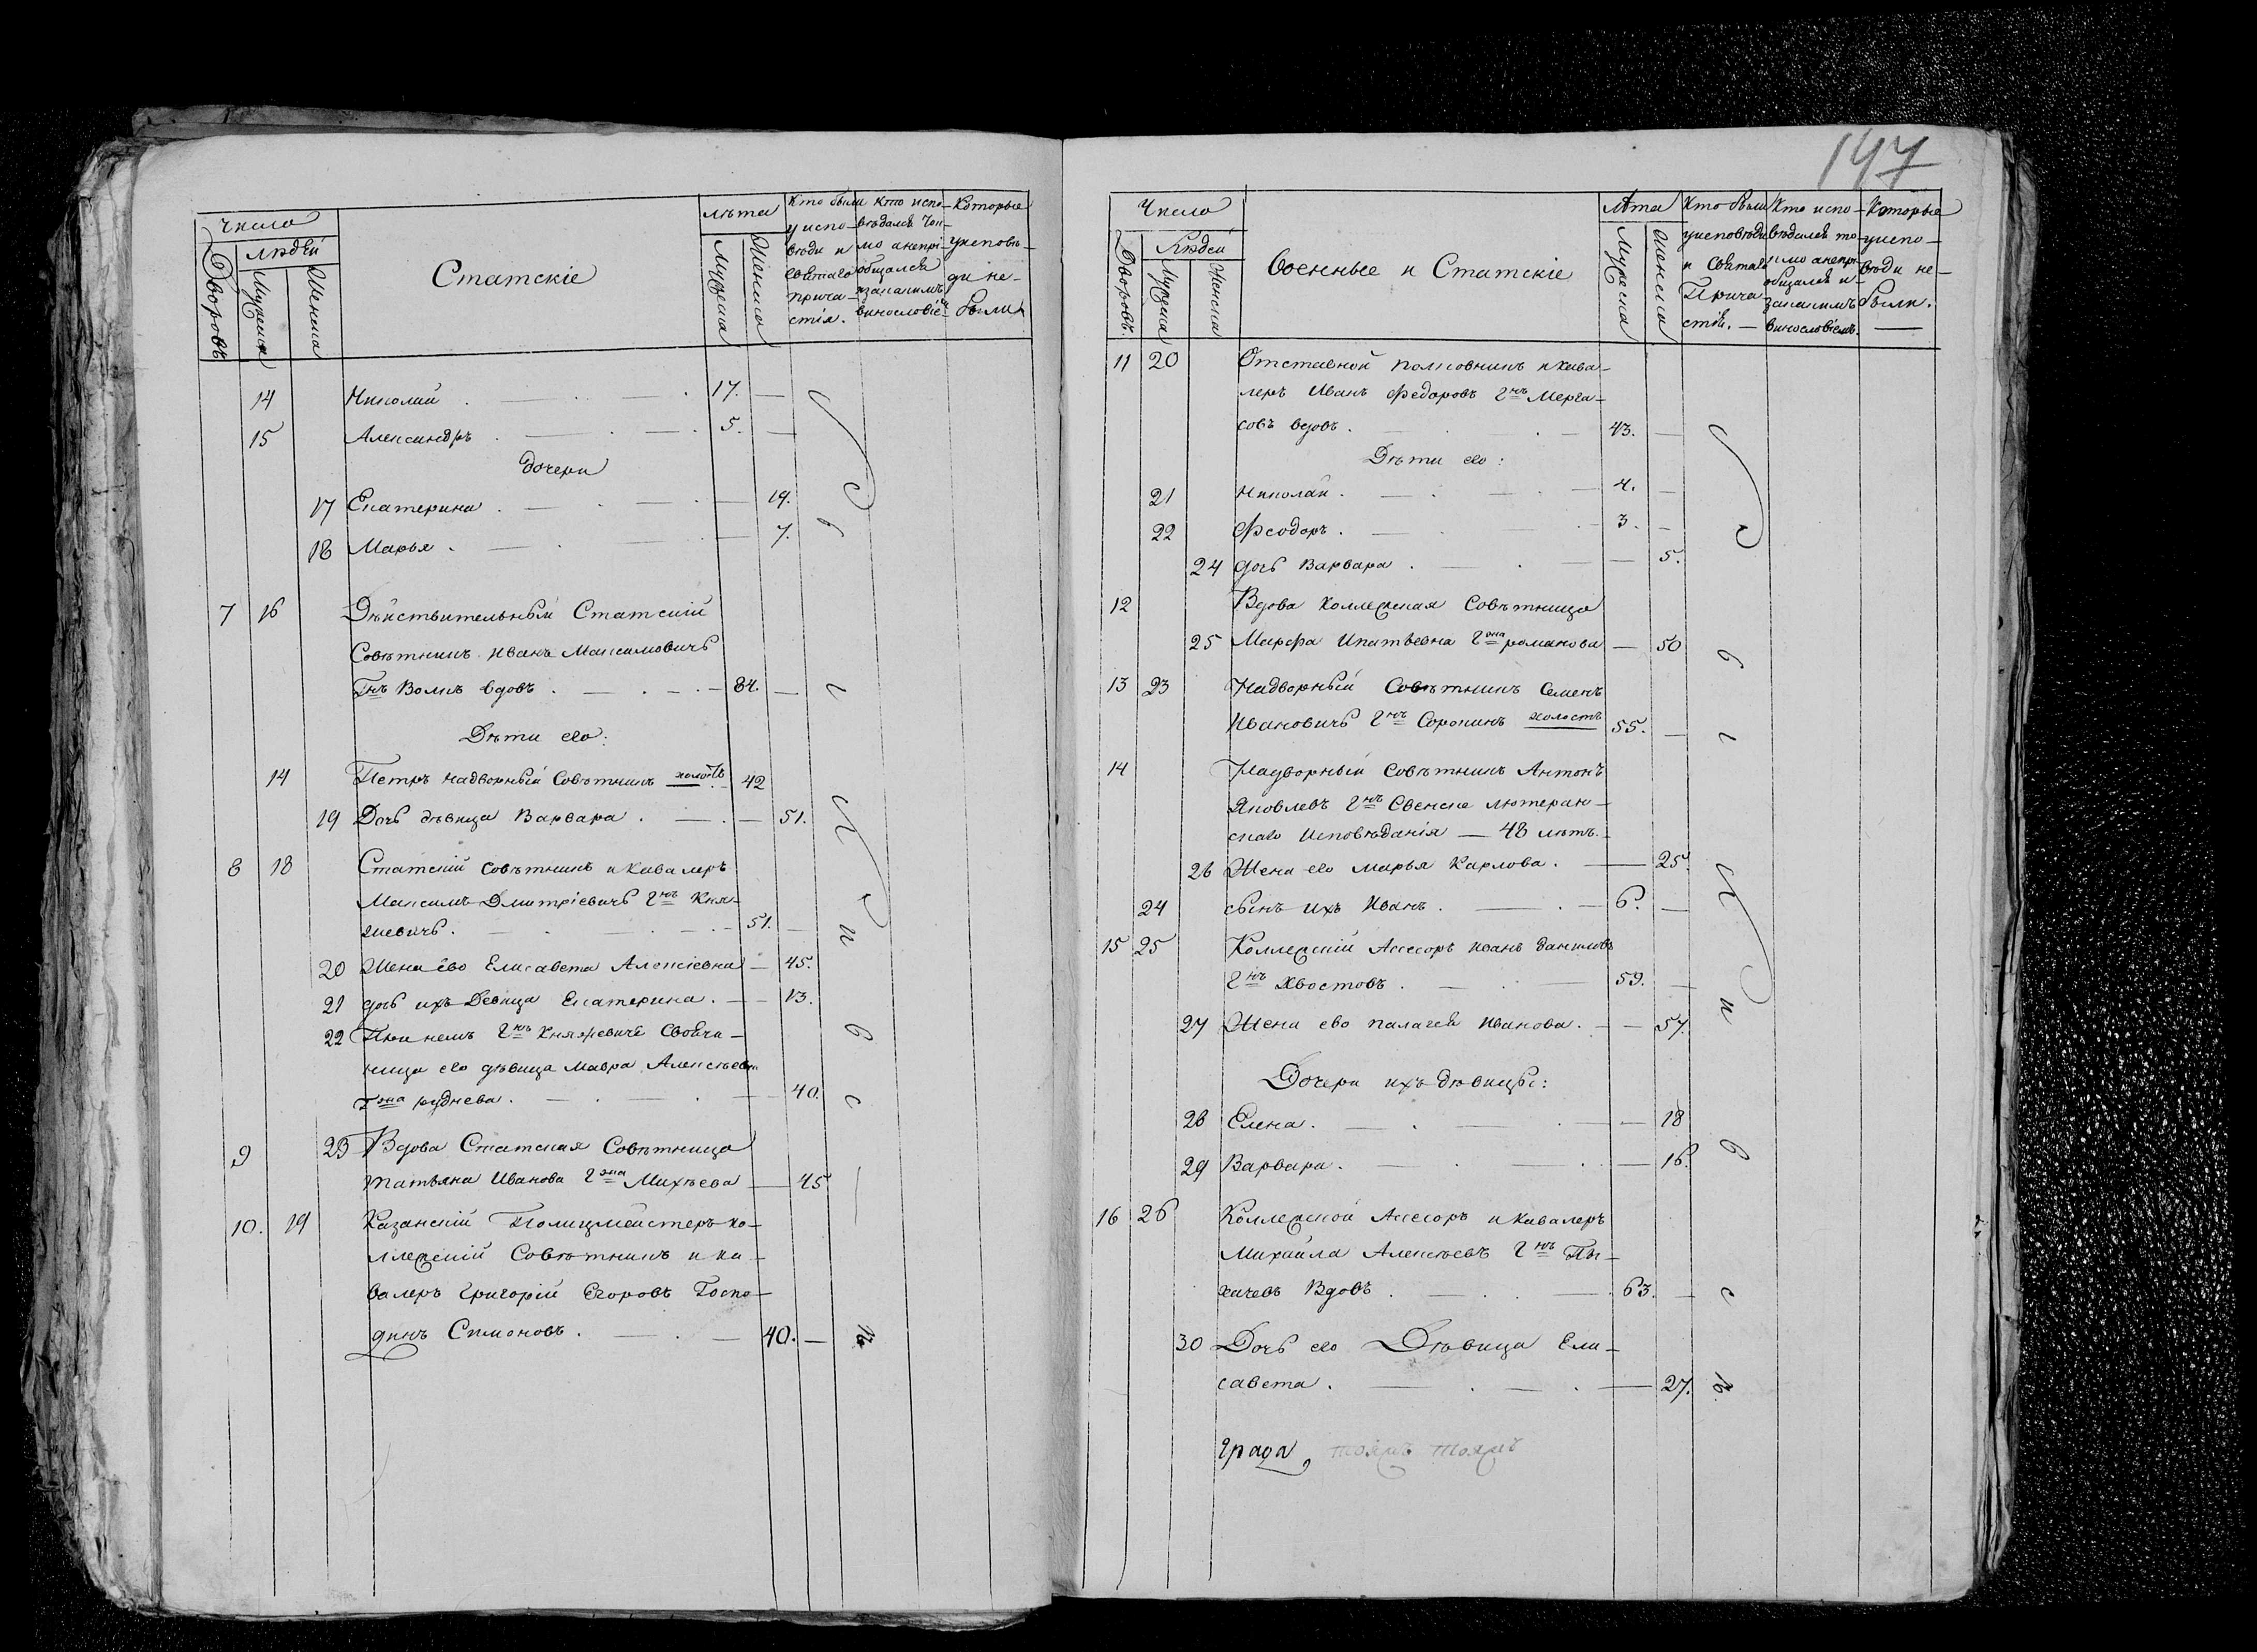 Число
людей
Дворовъ
Мужеска
Женска
Статскіе
лѣта
Мужеска
Женска
Кто были
у испо-
вѣди и
святаго
прича-
стія.
Кто испо-
вѣдался
мо а непрі-
общался
и за какимъ
винословіе
Которые
у исповѣ-
ди не-
были
14 Николай . 17.
15 Александръ . 5.
дочери
17 Екатерина . 19.
18 Марья . 7.
7 16 Дѣйствительный Статскій
Совѣтникъ Иванъ Максимовичь
Гнъ Волкъ вдовъ . 84.
Дѣти его:
14 Петръ надворный Совѣтникъ холостъ 42
19 Дочь дѣвица Варвара . 51.
8 18 Статскій совѣтникъ и кавалеръ
Максимъ Дмитріевичь Гнъ Кня-
жевичь . 51.
20 Жена ево Елисавета Алексіевна 45.
21 дочь ихъ Девица Екатерина . 13.
22 При немъ Гнъ Княжевиче Своячи-
ница его дѣвица Мавра Алексѣевна
Гжа руднева . 40.
9 23 Вдова Статская Совѣтница
татьяна Иванова Гжа Михѣева 45
10. 19 Казанскій Полицмейстеръ ко-
ллежскій Совѣтникъ и ка-
валеръ Григорій Егоровъ Госпо-
динъ Симоновъ . 40.
147
Число
Людей
Дворовъ.
Мужеска
Женска
Военные и Статскіе
Лѣта
Мужеска
Женска
Кто были
у исповѣди
и Святаго
Прича-
стія.
Кто испо-
вѣдался то-
кмо а непрі-
общался и
за какимъ
винословіемъ.
Которые
у испо-
вѣди не-
были.
11 20 Отставной полковникъ и кава-
леръ Иванъ Федоровъ Гнъ Мерга-
совъ вдовъ . 43.
Дѣти его:
21 Николай . 4.
22 Феодоръ . 3.
24 дочь Варвара . 5.
12 Вдова коллежская Совѣтница
25 Марфа Ипатьевна Гжа романова 50
13 23 Надворный Совѣтникъ Семенъ
Ивановичь Гнъ Сорокинъ холостъ 55.
14 Надворный Совѣтникъ Антонъ
Яковлевъ Гнъ Свенске лютеран-
скаго Исповѣданія — 48 лѣтъ.
26 Жена его Марья Карлова . 25.
24 сынъ ихъ Иванъ . 6.
15 25 Коллежскій Ассесоръ Иванъ Даниловъ
Гнъ Хвостовъ . 59.
27 Жена ево палагея Иванова . 57.
Дочери ихъ дѣвицы:
28 Елена . 18
29 Варвара . 16.
16 26 Коллежской Ассесоръ и кавалеръ
Михайла Алексѣевъ Гнъ Пы-
хачевъ Вдовъ . 63.
30 Дочь его Дѣвица Ели-
савета . 27.
града,